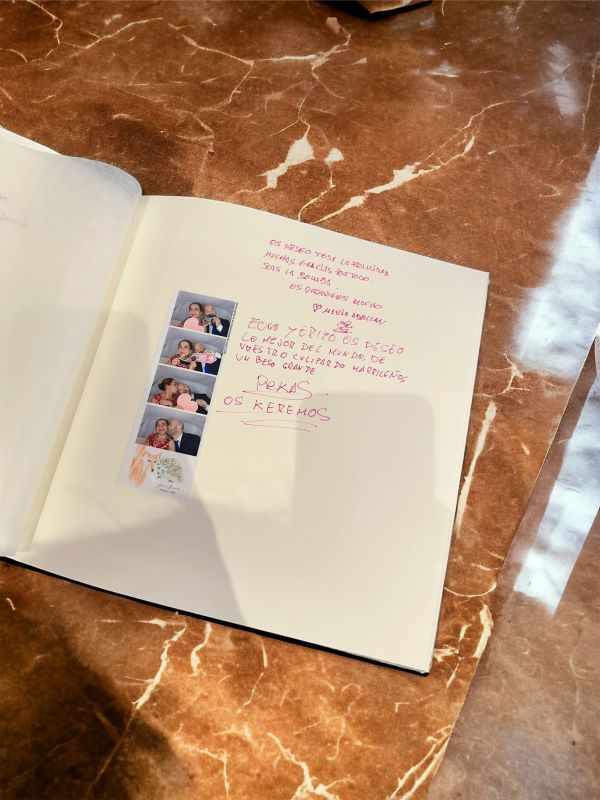 OS DESEO TODA LA FELICIDAD
MUCHAS GRACIAS POR TODO.
SOIS LA BOMBA.
OS QUEREMOS MUCHO
♡ MARÍA
Y OS DESEO
LO MEJOR DEL MUNDO, DE
VUESTRO CULIPARDO MARRILEÑOS
UN BESO GRANDE
PEKAS
OS KEREMOS